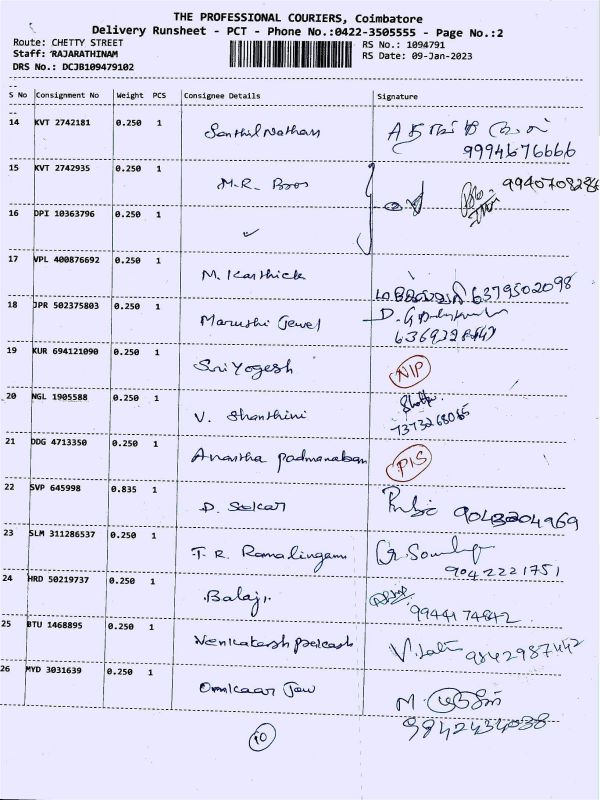 THE PROFESSIONAL COURIERS, Coimbatore
Delivery Runsheet - PCT - Phone No.:0422-3505555 - Page No.:2
Route: CHETTY STREET RS No.: 1094791
Staff: RAJARATHINAM RS Date: 09-Jan-2023
DRS No.: DCJB109479102
S No Consignment No Weight PCS Consignee Details Signature
14 KVT 2742181 0.250 1 Senthil Nathan
9994676666
15 KVT 2742935 0.250 1 M.R. Bros 9940708286
16 DPI 10363796 0.250 1 ✓
17 VPL 400876692 0.250 1 M. Karthick 6379502098
18 JPR 502375803 0.250 1 Maruthi Jewel D.
19 KUR 694121090 0.250 1 Sri Yogesh NIP
20 NGL 1905588 0.250 1 V. Shanthini
7373268065
21 DDG 4713350 0.250 1 Anantha Padmanaban PIS
22 SVP 645998 0.835 1 D. Sekar
23 SLM 311286537 0.250 1 T. R. Ramalingam
9042221751
24 HRD 50219737 0.250 1 Balaji.
9944174842
25 BTU 1468895 0.250 1 Venkatesh 9842987442
26 MYD 3031639 0.250 1 Omkaar Jew M.
9842434038
10